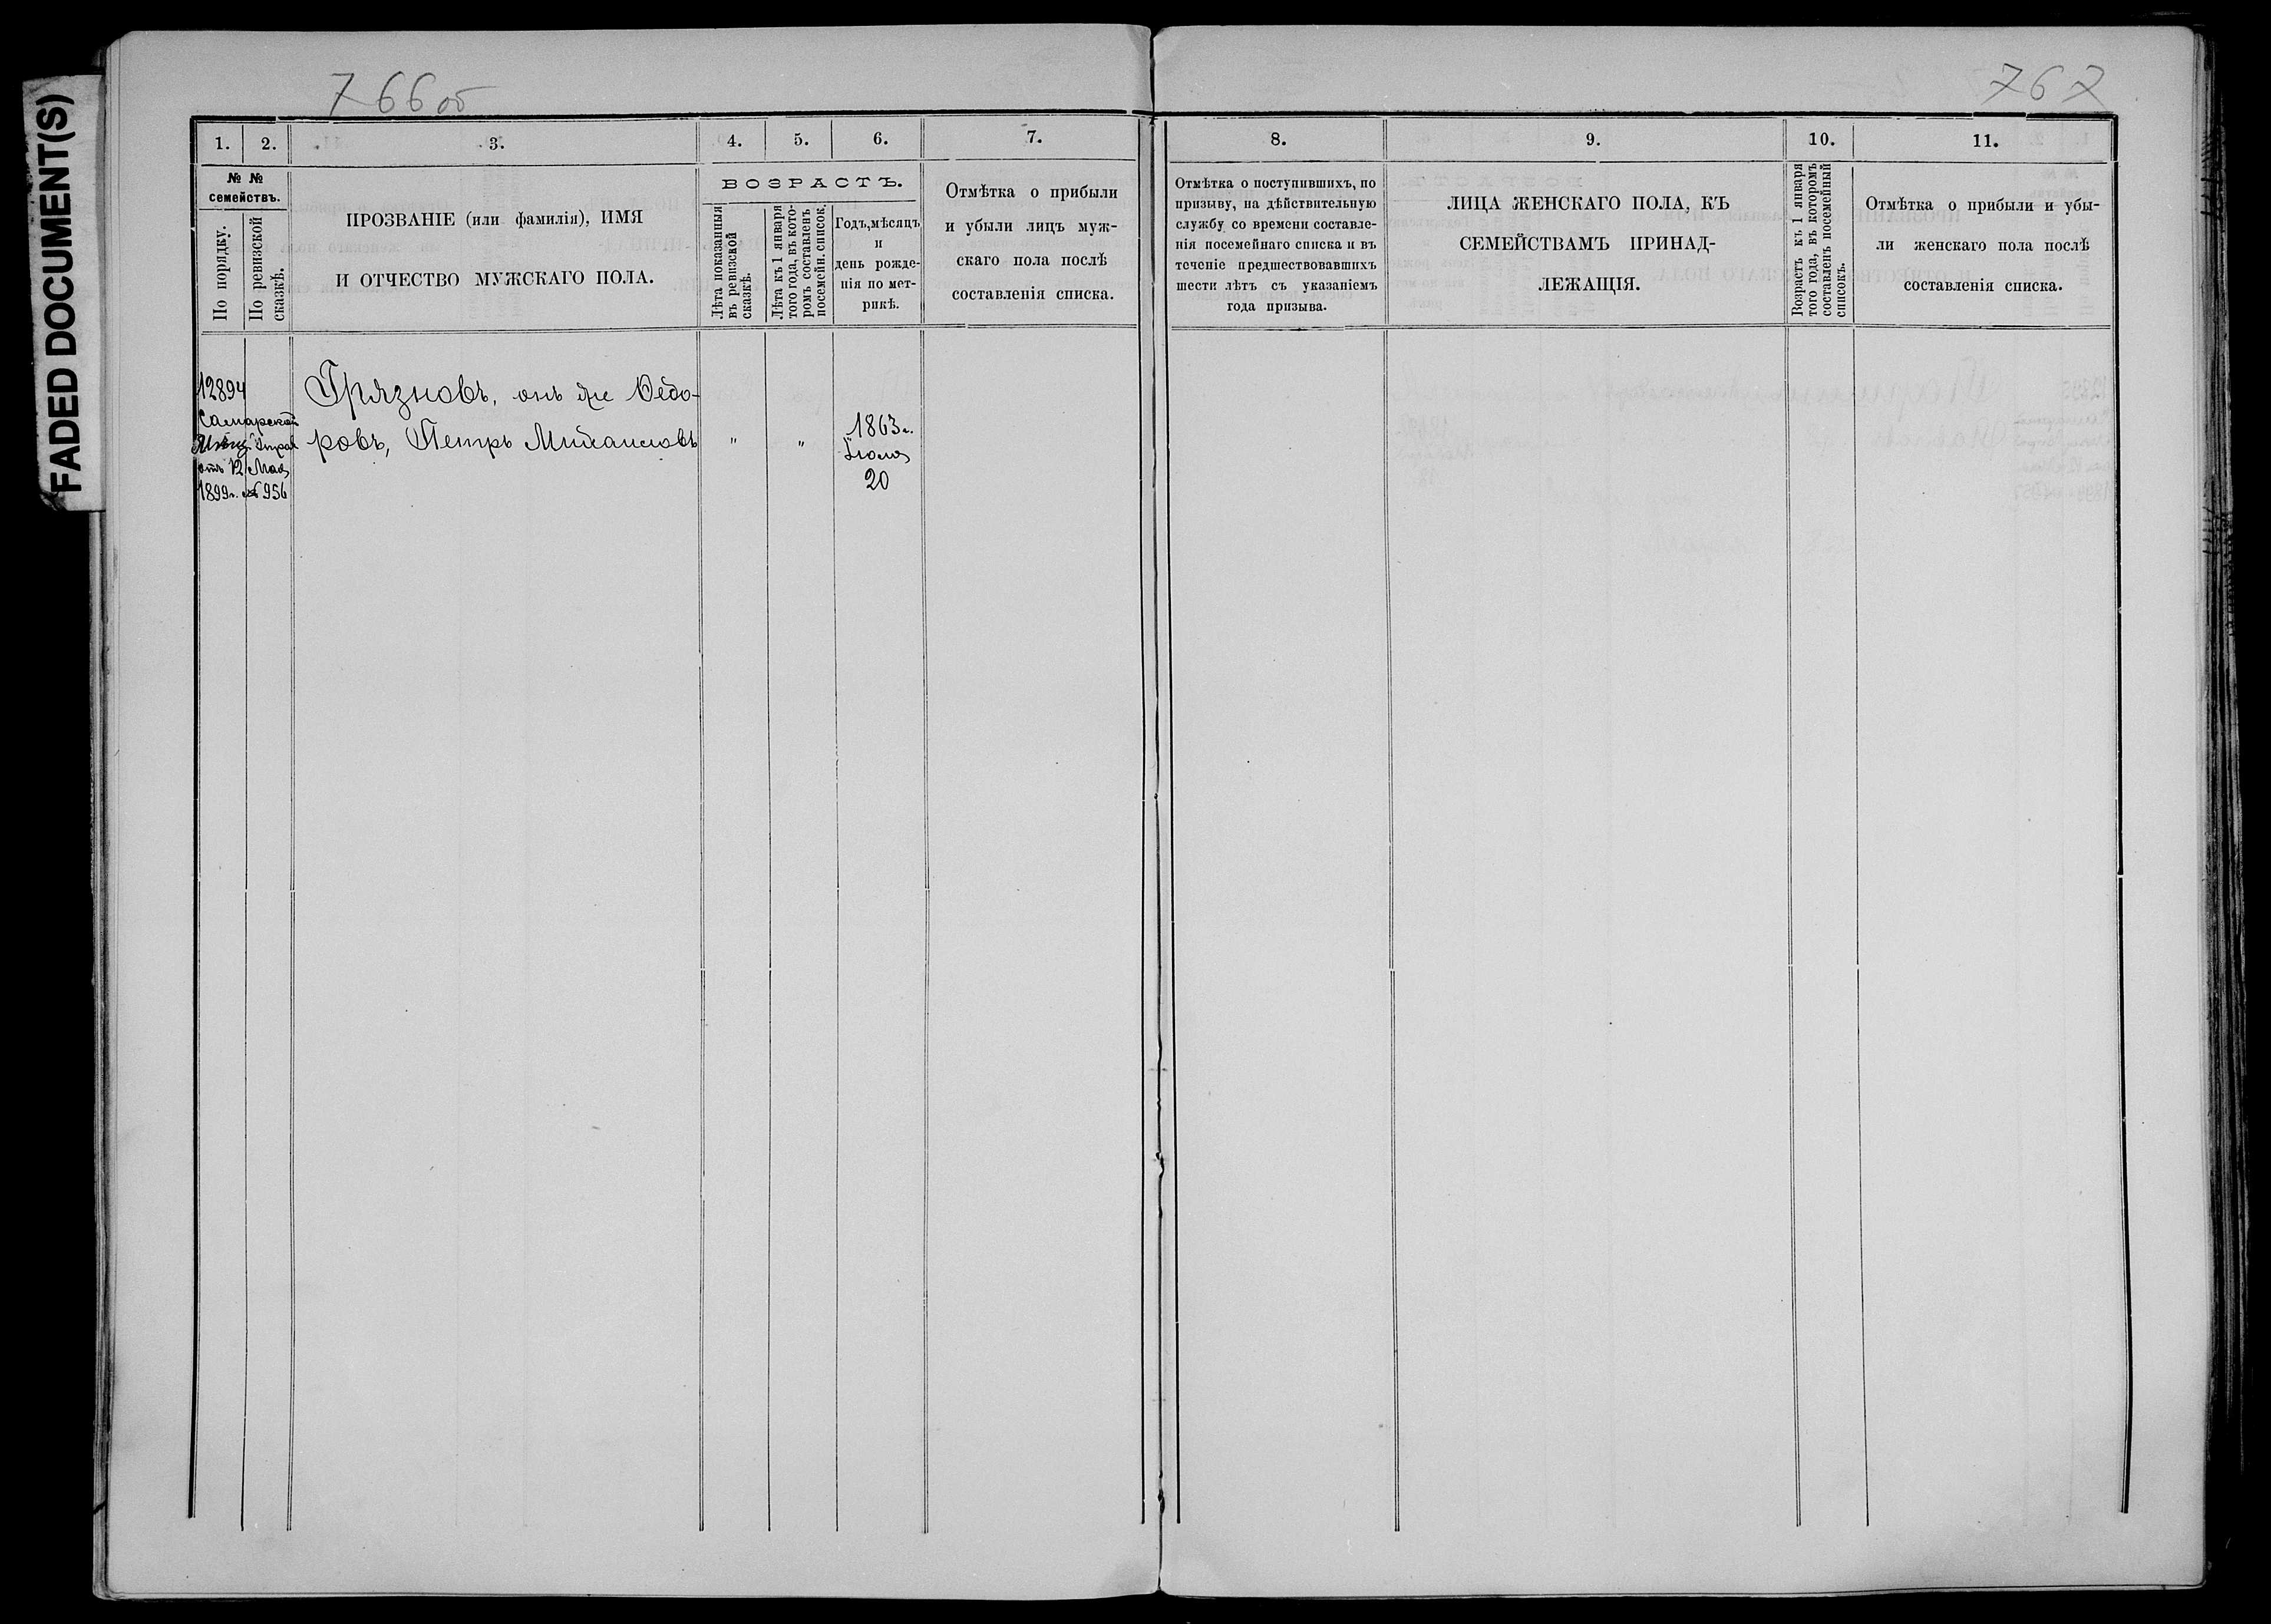 FADED DOCUMENT(S)
766об
767
1.
2.
3.
4.
5.
6.
7.
8.
9.
10.
11.
№ №
семействъ.
По порядку.
По ревизской
сказкѣ.
ПРОЗВАНІЕ (или фамилія), ИМЯ
И ОТЧЕСТВО МУЖСКАГО ПОЛА.
ВОЗРАСТЪ.
Лѣта показанныя
въ ревизской
сказкѣ.
Лѣта къ 1 января
того года, въ кото-
ромъ составленъ
посемейн. список.
Годъ, мѣсяцъ
и
день рожде-
нія по мет-
рикѣ.
Отмѣтка о прибыли
и убыли лицъ муж-
скаго пола послѣ
составленія списка.
Отмѣтка о поступившихъ, по
призыву, на дѣйствительную
службу со времени составле-
нія посемейнаго списка и въ
теченіе предшествовавшихъ
шести лѣтъ съ указаніемъ
года призыва.
ЛИЦА ЖЕНСКАГО ПОЛА, КЪ
СЕМЕЙСТВАМЪ ПРИНАД-
ЛЕЖАЩІЯ.
Возрастъ къ 1 января
того года, въ которомъ
составленъ посемейный
списокъ.
Отмѣтка о прибыли и убы-
ли женскаго пола послѣ
составленія списка.
12894
Самарской
Мѣщ. Управ
отъ 12 Мая
1899г. № 956
Грязновъ, онъ же Ѳедо-
ровъ, Петръ Михаиловъ
"
"
1863 г.
Іюля
20